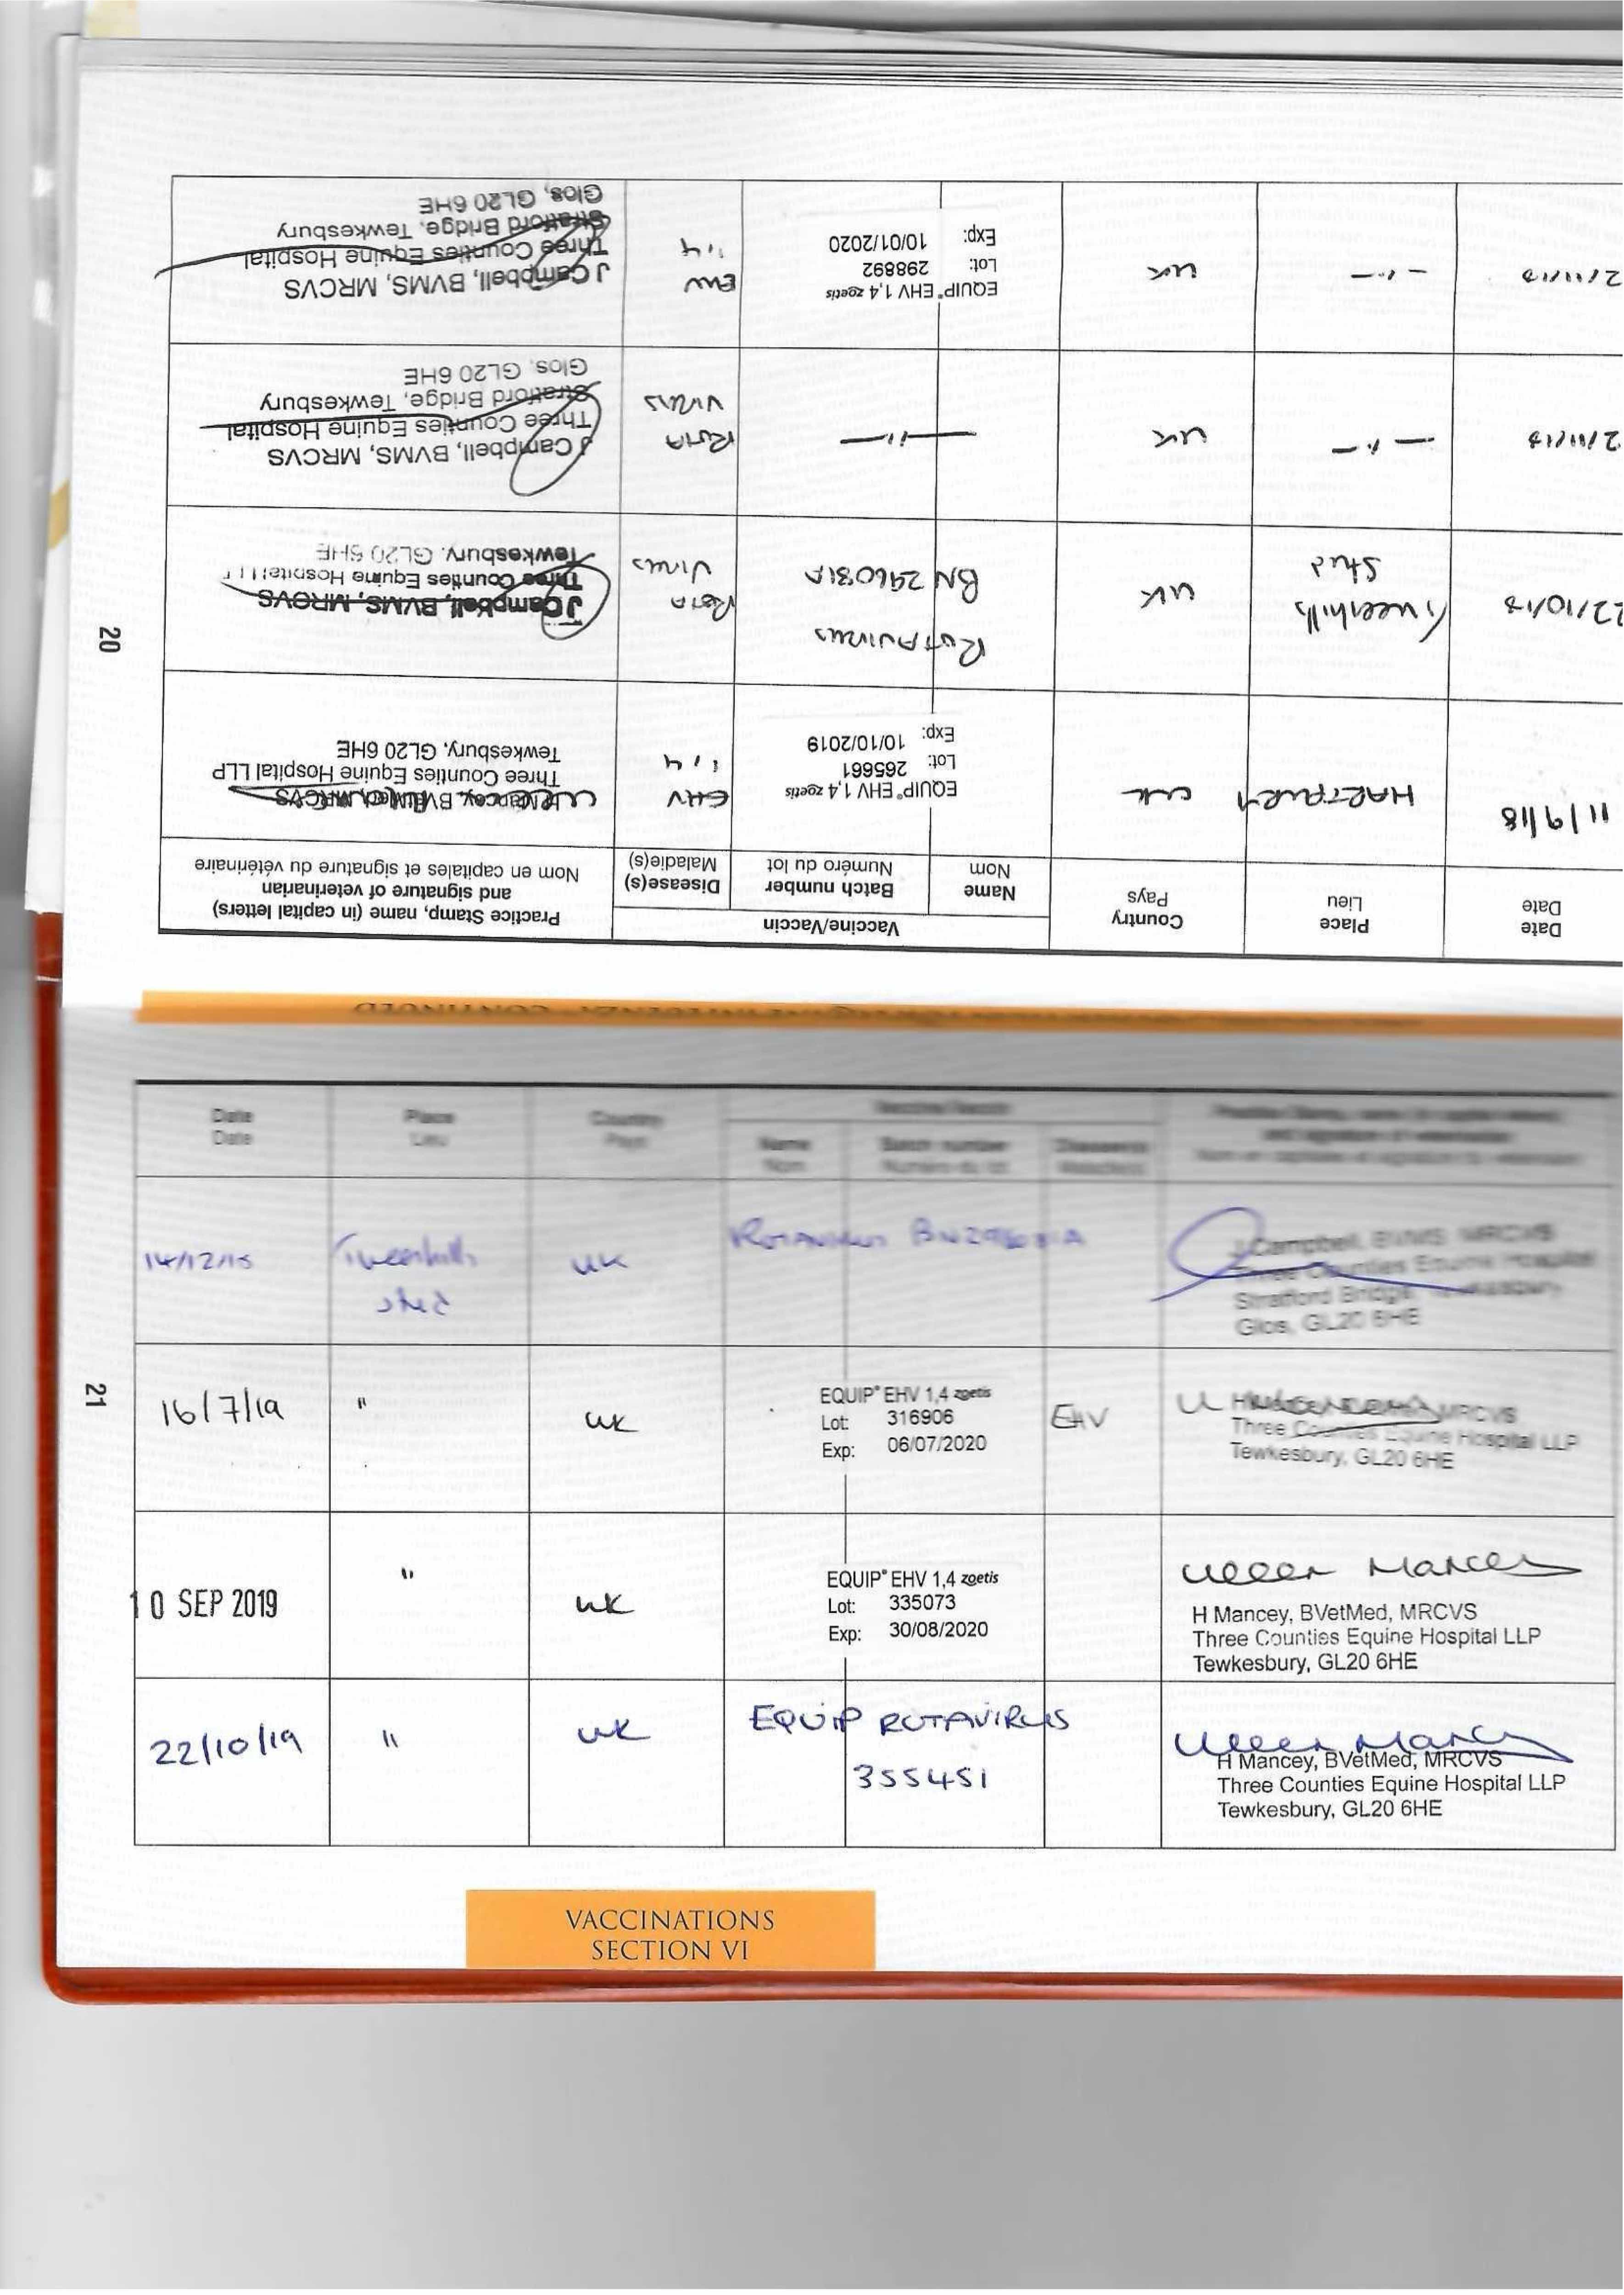 Date
Date
Place
Lieu
Country
Pays
Vaccine/Vaccin
Name
Nom
Batch number
Numéro du lot
Disease(s)
Maladie(s)
Practice Stamp, name (in capital letters)
and signature of veterinarian
Nom en capitales et signature du vétérinaire
11/9/18
HARTPURY
UK
EQUIP® EHV 1,4 zoetis
Lot: 265661
Exp: 10/10/2019
EHV
1,4
Three Counties Equine Hospital LLP
Tewkesbury, GL20 6HE
Tweenhills
Stud
UK
ROTAVIRUS
BN 296031A
ROTA
VIRUS
J Campbell, BVMS, MRCVS
Three Counties Equine Hospital
Tewkesbury. GL20 6HE
— " —
UK
— " —
ROTA
VIRUS
J Campbell, BVMS, MRCVS
Three Counties Equine Hospital
Stratford Bridge, Tewkesbury
Glos, GL20 6HE
— " —
UK
EQUIP® EHV 1,4 zoetis
Lot: 298892
Exp: 10/01/2020
EHV
1,4
J Campbell, BVMS, MRCVS
Three Counties Equine Hospital
Stratford Bridge, Tewkesbury
Glos, GL20 6HE
20
Date
Date
Place
Lieu
Country
Pays
Name
Nom
Batch number
Numéro du lot
Tweenhills
Stud
UK
ROTAVIRUS
J Campbell, BVMS MRCVS
Three Counties Equine Hospital
Stratford Bridge, Tewkesbury
Glos, GL20 6HE
16/7/19
"
UK
EQUIP® EHV 1,4 zoetis
Lot: 316906
Exp: 06/07/2020
EHV
MRCVS
Three Counties Equine Hospital LLP
Tewkesbury, GL20 6HE
10 SEP 2019
"
UK
EQUIP® EHV 1,4 zoetis
Lot: 335073
Exp: 30/08/2020
H Mancey, BVetMed, MRCVS
Three Counties Equine Hospital LLP
Tewkesbury, GL20 6HE
22/10/19
"
UK
EQUIP ROTAVIRUS
355451
H Mancey, BVetMed, MRCVS
Three Counties Equine Hospital LLP
Tewkesbury, GL20 6HE
21
VACCINATIONS
SECTION VI